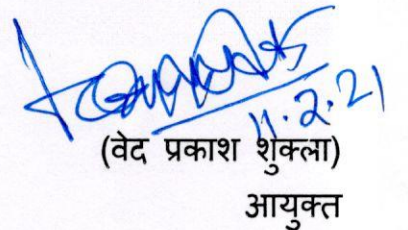 11.2.21
(वेद प्रकाश शुक्ला)
आयुक्त